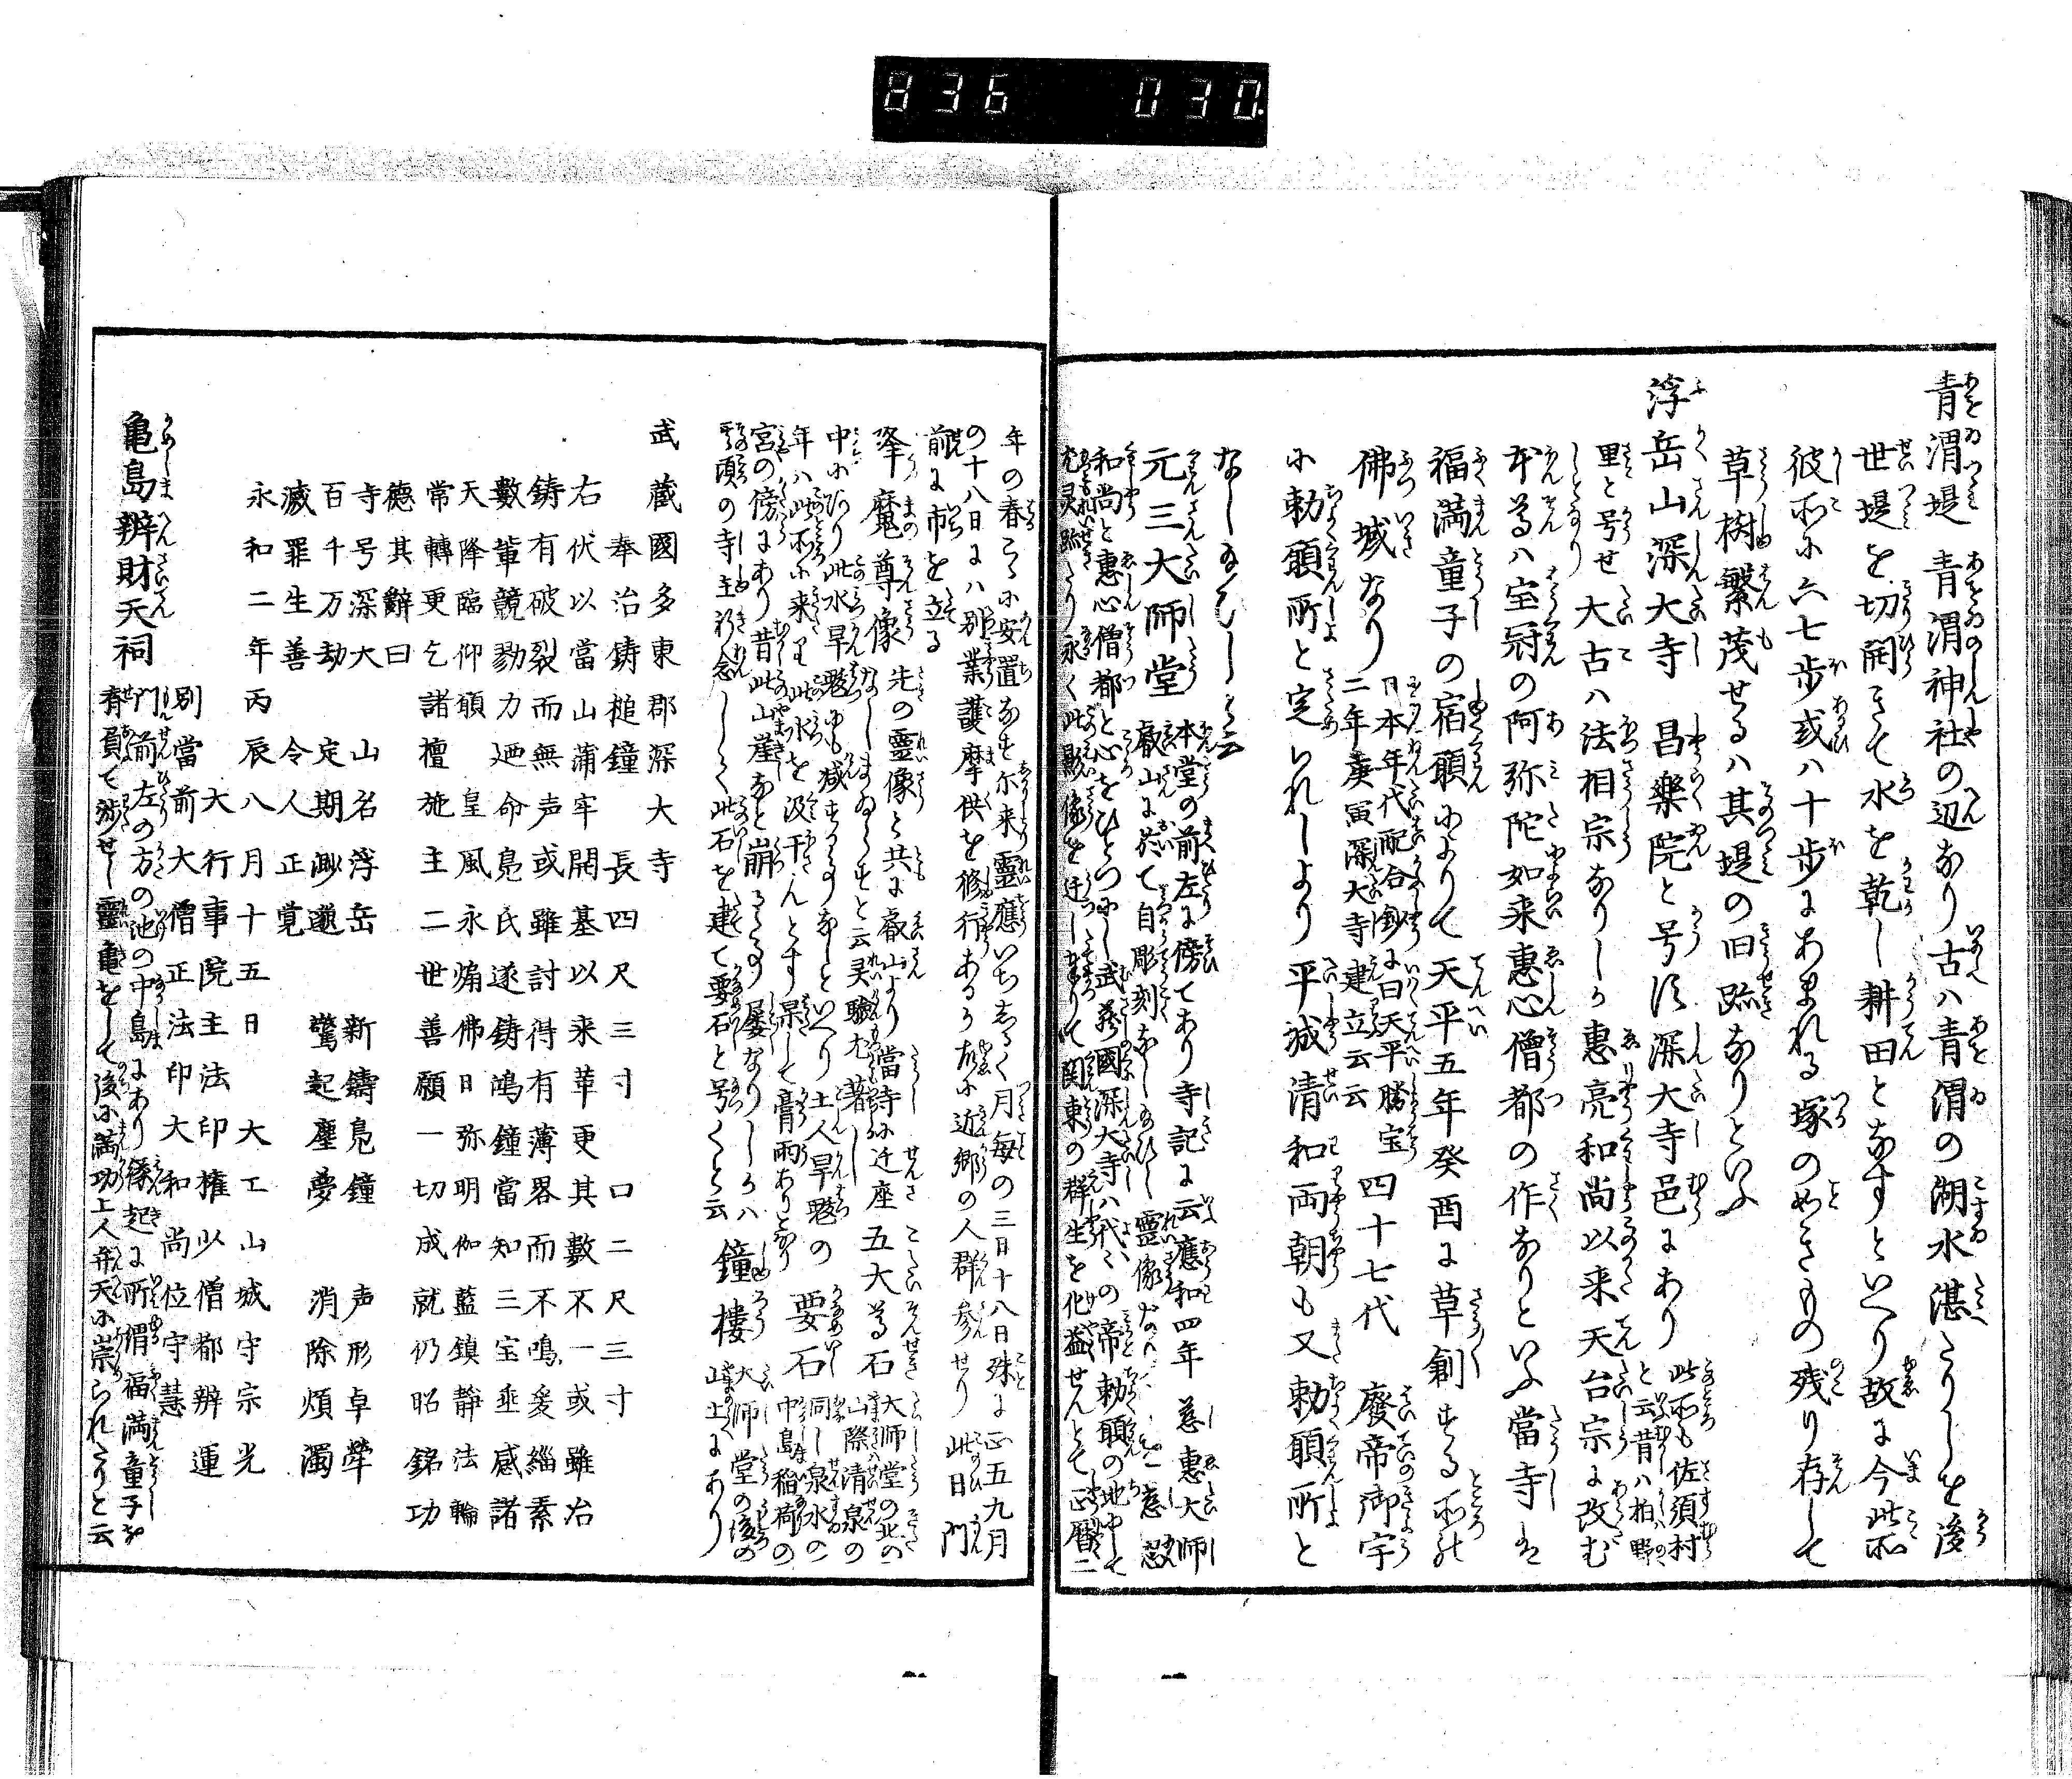 836 030
青渭堤 青渭神社の辺なり古ハ青渭の湖水湛たりしを後
世堤を切開きて水を乾し耕田となすといへり故に今此所
彼所に六七歩或ハ十歩にあまれる塚の如きもの残り存して
草樹繁茂せるハ其堤の旧跡なりといふ
浮岳山深大寺 昌樂院と号す深大寺邑にあり 此所も佐須村
と云昔ハ柏野
里と号せしとなり 大古ハ法相宗なりしか惠亮和尚以来天台宗に改む
本尊ハ宝冠の阿弥陀如来惠心僧都の作なりといふ當寺は
福満童子の宿願によりて天平五年癸酉に草創する所の
佛域なり 日本年代配合鈔に曰天平勝宝
二年庚寅深大寺建立云云 四十七代 廢帝御宇
に勅願所と定られしより平城清和両朝も又勅願所と
なしたひしと云
元三大師堂 本堂の前左に傍てあり寺記に云應和四年 慈惠大師
叡山に於て自彫刻なし給ひし霊像なり
和尚と惠心僧都と心をひとつにし武蔵國深大寺ハ代々の帝勅願の地にして
尤灵跡たり永く此影像を迁し奉りて関東の群生を化益せんとて正暦二
年の春こゝに安置なす尓来靈應いちしるく月毎の三日十八日殊に正五九月
の十八日にハ別業護摩供を修行あるか故に近郷の人群参せり此日門
前に市を立る
降魔尊像 先の靈像と共に叡山より當寺に迁座
なしまゐらすと云灵驗尤著し 五大尊石 大師堂の北の
山際清泉の
中にあり此水旱魃にも减する事なしといへり土人旱魃の
年ハ此所に来り此水を汲干んとす果して膏雨ありとなり 要石 同し泉水の
中島稲荷の
宮の傍にあり昔此山崖なと崩るゝ事屡なりしかハ
其頃の寺主祈念して此石を建て要石と号くと云 鐘樓 大師堂の後の
山上にあり
武藏國多東郡深大寺
奉治鋳槌鐘 長四尺三寸 口二尺三寸
右伏以當山蒲牢開基以来革更其數不一或雖冶
鋳有破裂而無声或雖討得有薄畧而不鳴爰緇素
數軰競勠力廻命鳧氏遂鋳鴻鐘當知三宝垂感諸
天降臨仰願 皇風永煽佛日弥明伽藍鎮静法輪
常轉更乞諸檀施主二世善願一切成就仍昭銘功
德其辭曰
寺号深大 山名浮岳 新鑄鳧鐘 声形卓犖
百千万劫 定期邈 驚起塵夢 消除煩濁
滅罪生善 令人正覚
永和二年丙辰八月十五日 大工山城守宗光
大行事院主法印権以僧都辨運
別當前大僧正法印大和尚位守慧
亀島辨財天祠 門前左の方の池の中島にあり縁起に所謂福満童子を
脊負て渉せし靈亀をして後に満功上人弁天に崇られたりと云